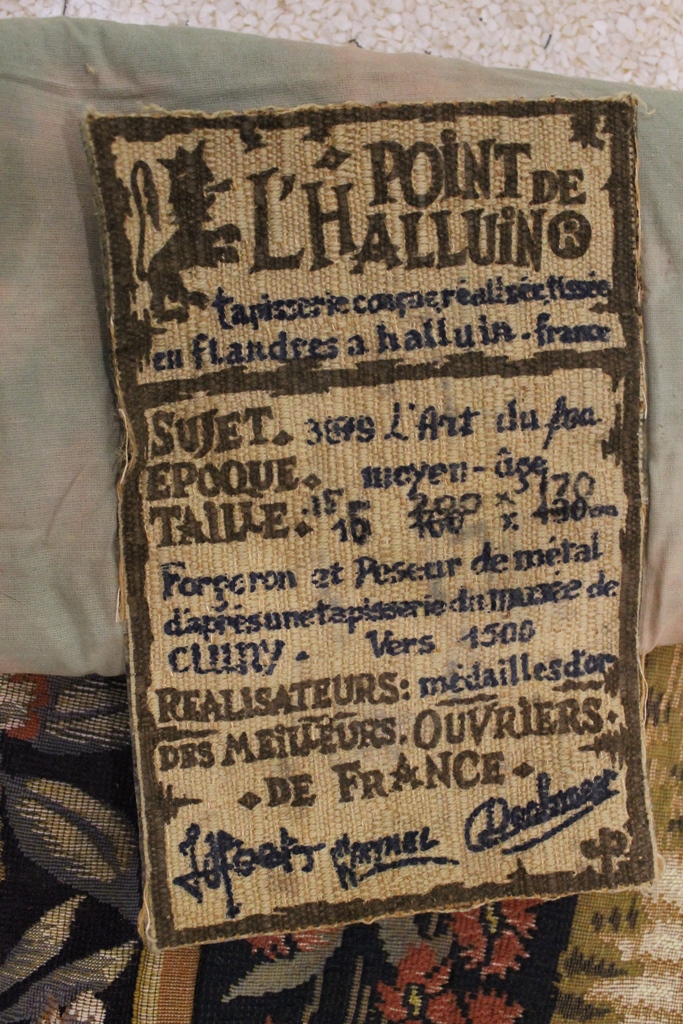 POINT DE
L'HALLUIN®
tapisserie conçue, réalisée, tissée
en flandres a halluin - france
SUJET. L'Art du feu
EPOQUE. moyen-âge
TAILLE.
Forgeron et Peseur de métal
d'après une tapisserie du musée de
CLUNY. Vers 1500
REALISATEURS: médailles d'or
DES MEILLEURS. OUVRIERS.
DE FRANCE